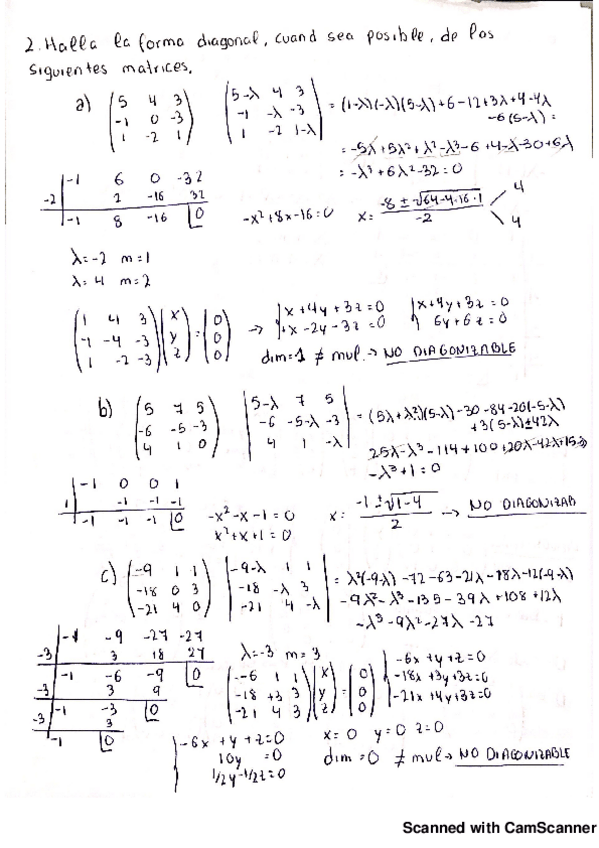 2. Halla la forma diagonal, cuand sea posible, de las
siguientes matrices.
a) (5 4 3 / -1 0 -3 / 1 -2 1) |5-λ 4 3 / -1 -λ -3 / 1 -2 1-λ| = (1-λ)(-λ)(5-λ)+6-12+3λ+4-4λ
-6(5-λ) =
= -5λ+5λ²+λ²-λ³-6+4-λ-30+6λ
= -λ³+6λ²-32=0
-1 6 0 -32
-2 2 -16 32
-1 8 -16 0
-x²+8x-16=0 x= (-8 ± √64-4·16·1) / -2 4 4
λ=-2 m=1
λ=4 m=2
(1 4 3 / -1 -4 -3 / 1 -2 -3)(x / y / z) = (0 / 0 / 0) → x+4y+3z=0 x+4y+3z=0
+x-2y-3z=0 6y+6z=0
dim=1 ≠ mul. → NO DIAGONIZABLE
b) (5 7 5 / -6 -5 -3 / 4 1 0) |5-λ 7 5 / -6 -5-λ -3 / 4 1 -λ| = (5λ+λ²)(5-λ)-30-84-20(-5-λ)
+3(5-λ)±42λ
25λ-λ³-114+100+20λ-42λ+15-3
-λ³+1=0
-1 0 0 1
1 -1 -1 -1
-1 -1 -1 0
-x²-x-1=0
x²+x+1=0
x= (-1±√1-4) / 2 → NO DIAGONIZAB
c) (-9 1 1 / -18 0 3 / -21 4 0) |-9-λ 1 1 / -18 -λ 3 / -21 4 -λ| = λ²(-9-λ)-72-63-21λ-18λ-12(-9-λ)
-9λ²-λ³-135-39λ+108+12λ
-λ³-9λ²-27λ-27
-1 -9 -27 -27
-3 3 18 27
-1 -6 -9 0
-3 3 9
-1 -3 0
-3 3
-1 0
λ=-3 m=3
(-6 1 1 / -18 +3 3 / -21 4 3)(x / y / z) = (0 / 0 / 0) -6x+y+z=0
-18x+3y+3z=0
-21x+4y+3z=0
-6x+y+z=0
10y =0
1/2y-1/2z=0
x=0 y=0 z=0
dim=0 ≠ mul → NO DIAGONIZABLE
Scanned with CamScanner